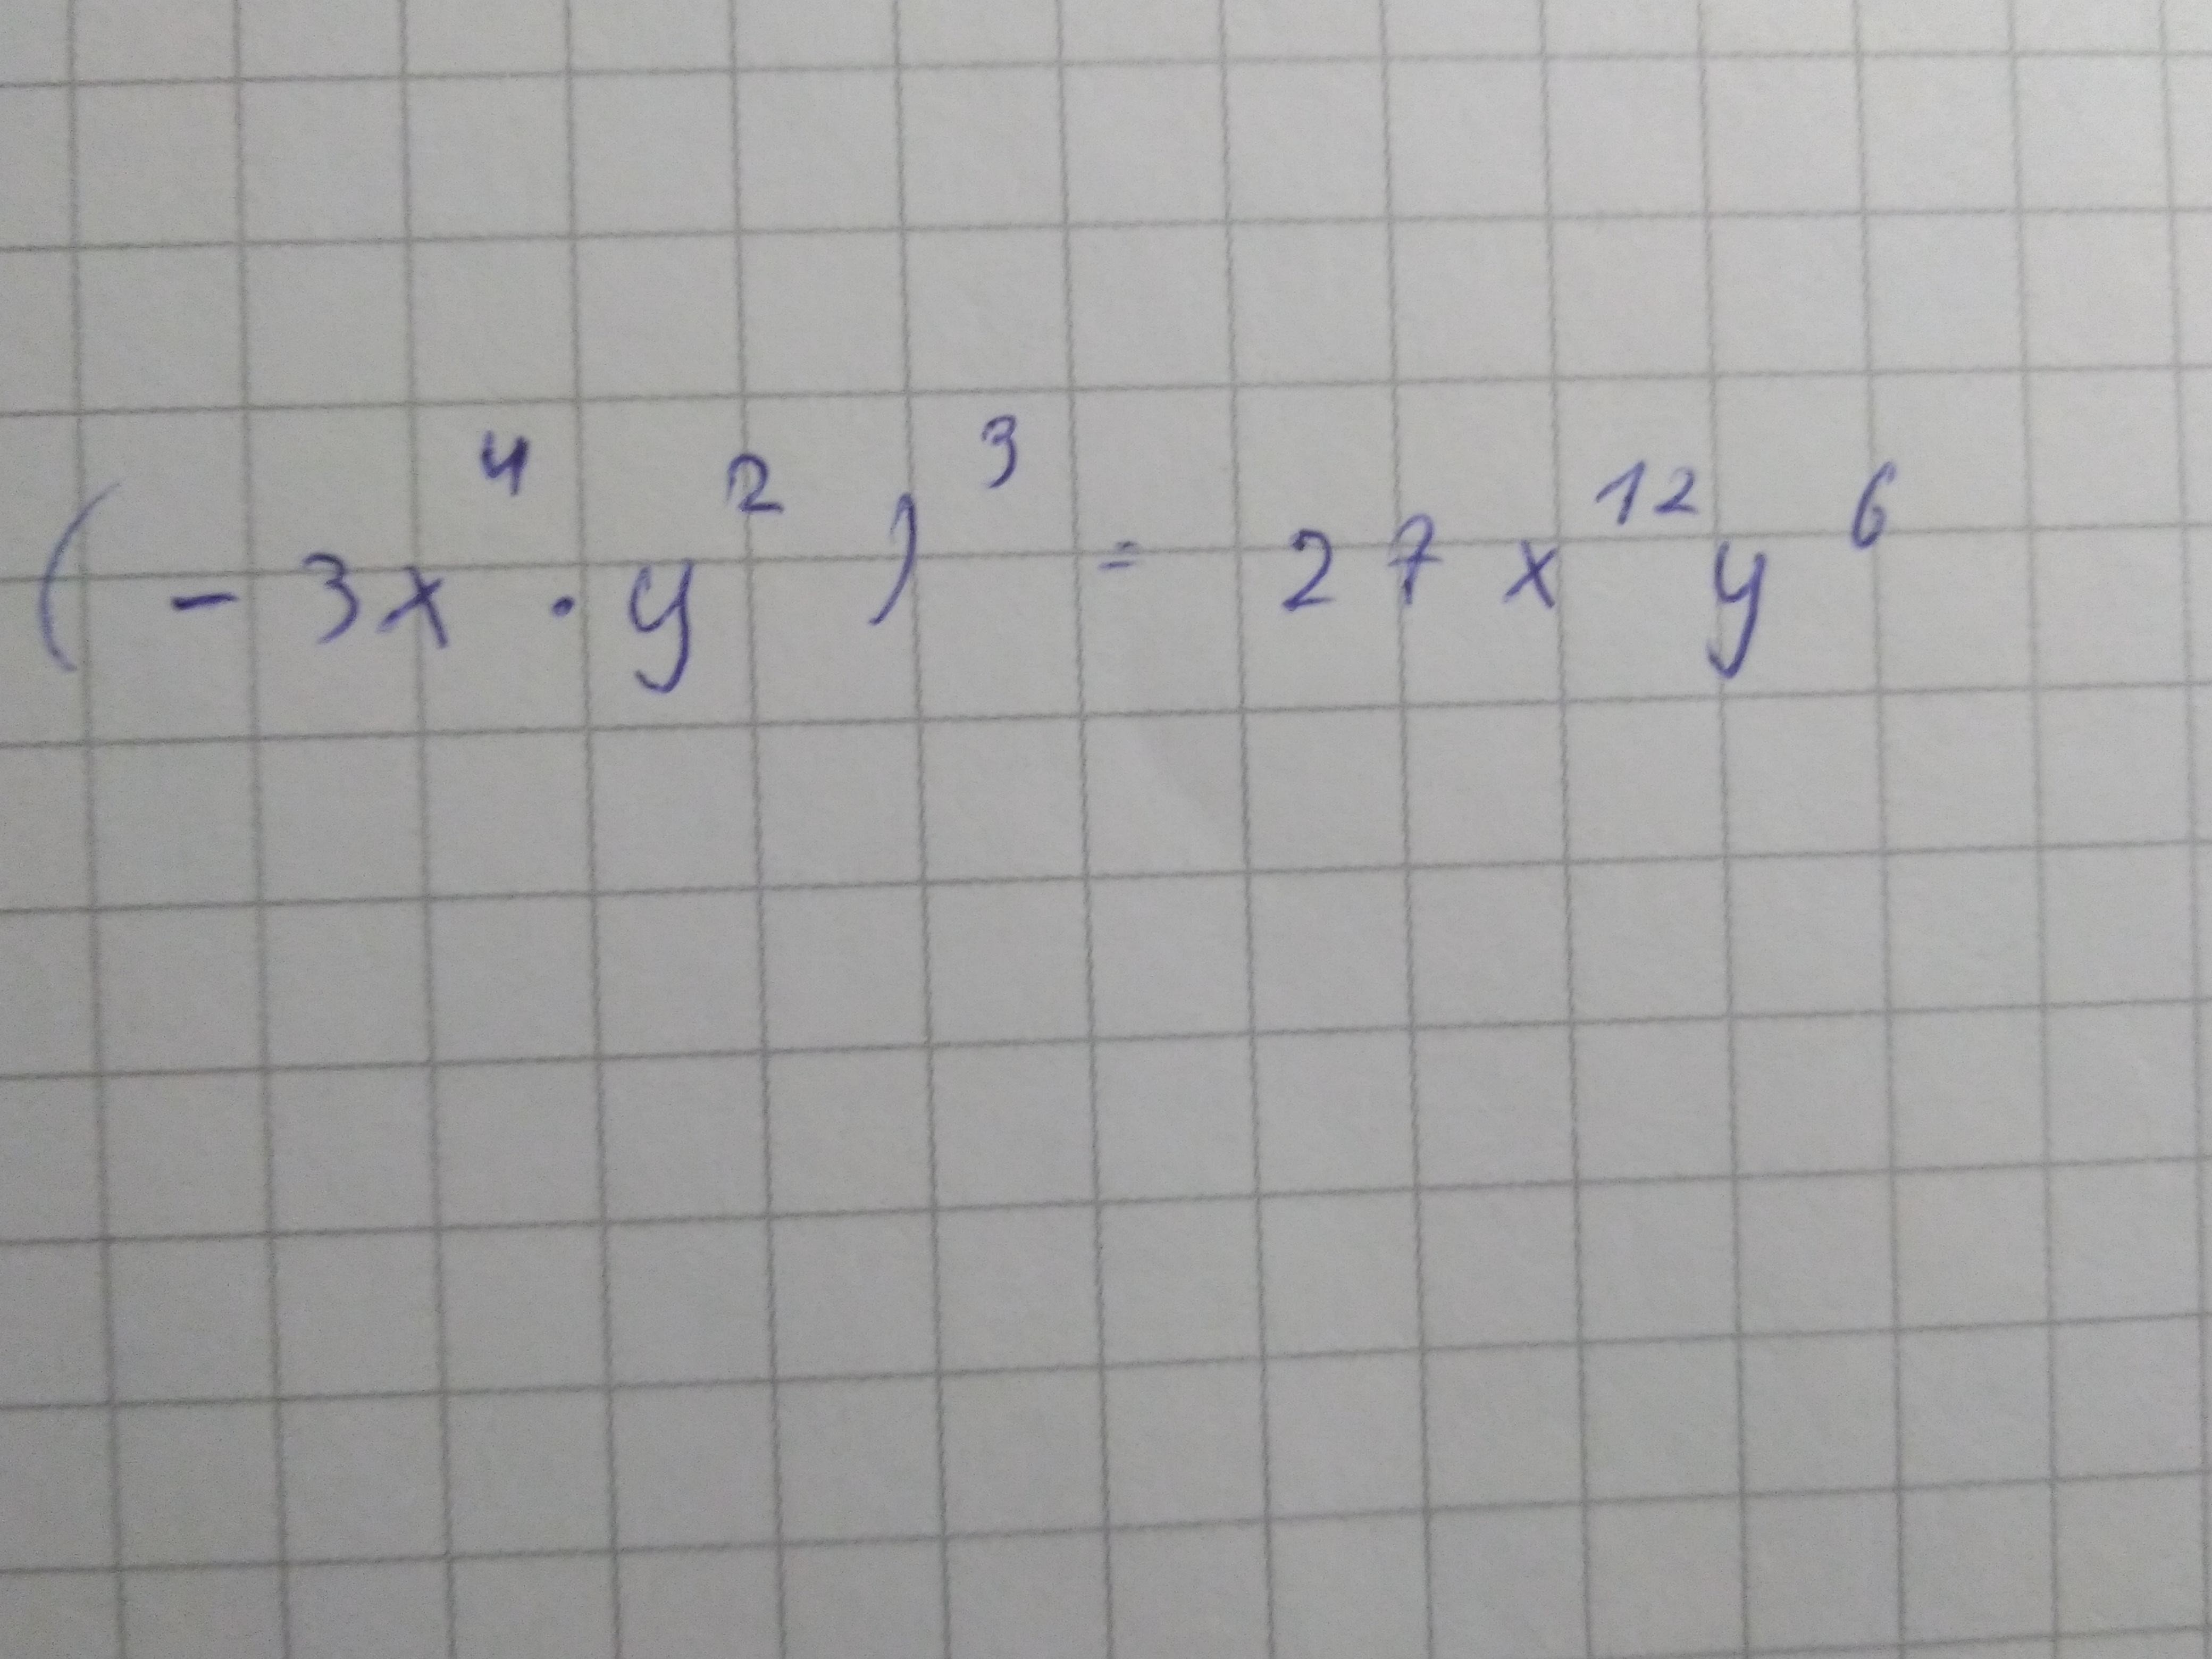 (-3x⁴·y²)³ = 27x¹²y⁶